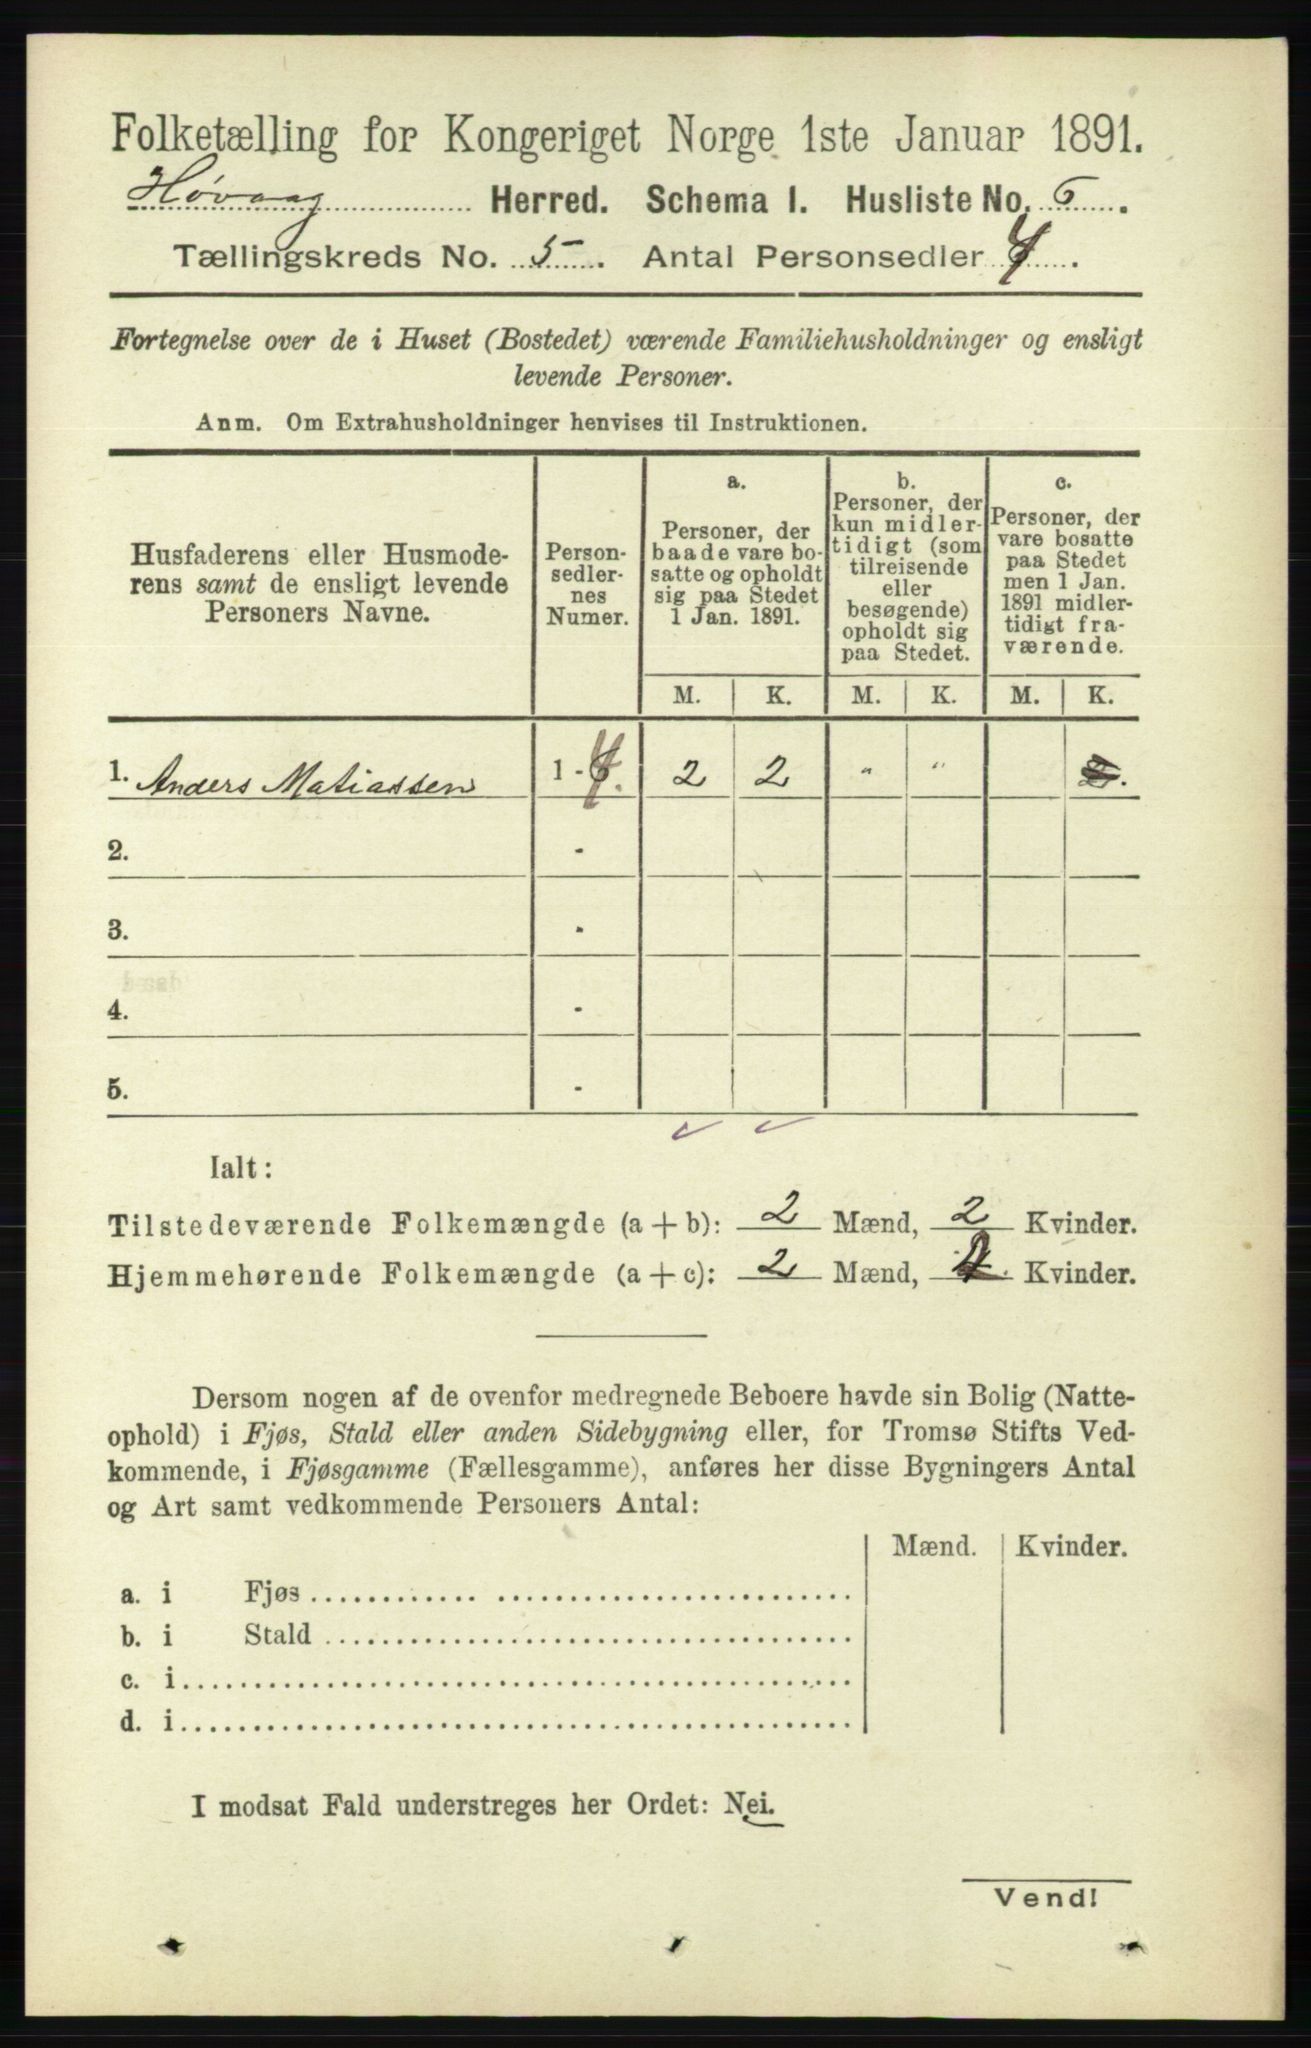 Folketælling for Kongeriget Norge 1ste Januar 1891.
Høvaag Herred. Schema I. Husliste No. 6.
Tællingskreds No. 5. Antal Personsedler 4.
Fortegnelse over de i Huset (Bostedet) værende Familiehusholdninger og ensligt
levende Personer.
Anm. Om Extrahusholdninger henvises til Instruktionen.
Husfaderens eller Husmode-
rens samt de ensligt levende
Personers Navne.
Person-
sedler-
nes
Numer.
a.
Personer, der
baade vare bo-
satte og opholdt
sig paa Stedet
1 Jan. 1891.
b.
Personer, der
kun midler-
tidigt (som
tilreisende
eller
besøgende)
opholdt sig
paa Stedet.
c.
Personer, der
vare bosatte
paa Stedet
men 1 Jan.
1891 midler-
tidigt fra-
værende.
M. K. M. K. M. K.
1. Anders Matiassen 1 - 4. 2 2 " "
2. -
3. -
4. -
5. -
Ialt:
Tilstedeværende Folkemængde (a + b): 2 Mænd, 2 Kvinder.
Hjemmehørende Folkemængde (a + c): 2 Mænd, 2 Kvinder.
Dersom nogen af de ovenfor medregnede Beboere havde sin Bolig (Natte-
ophold) i Fjøs, Stald eller anden Sidebygning eller, for Tromsø Stifts Ved-
kommende, i Fjøsgamme (Fællesgamme), anføres her disse Bygningers Antal
og Art samt vedkommende Personers Antal:
Mænd. Kvinder.
a. i Fjøs
b. i Stald
c. i
d. i
I modsat Fald understreges her Ordet: Nei.
Vend!